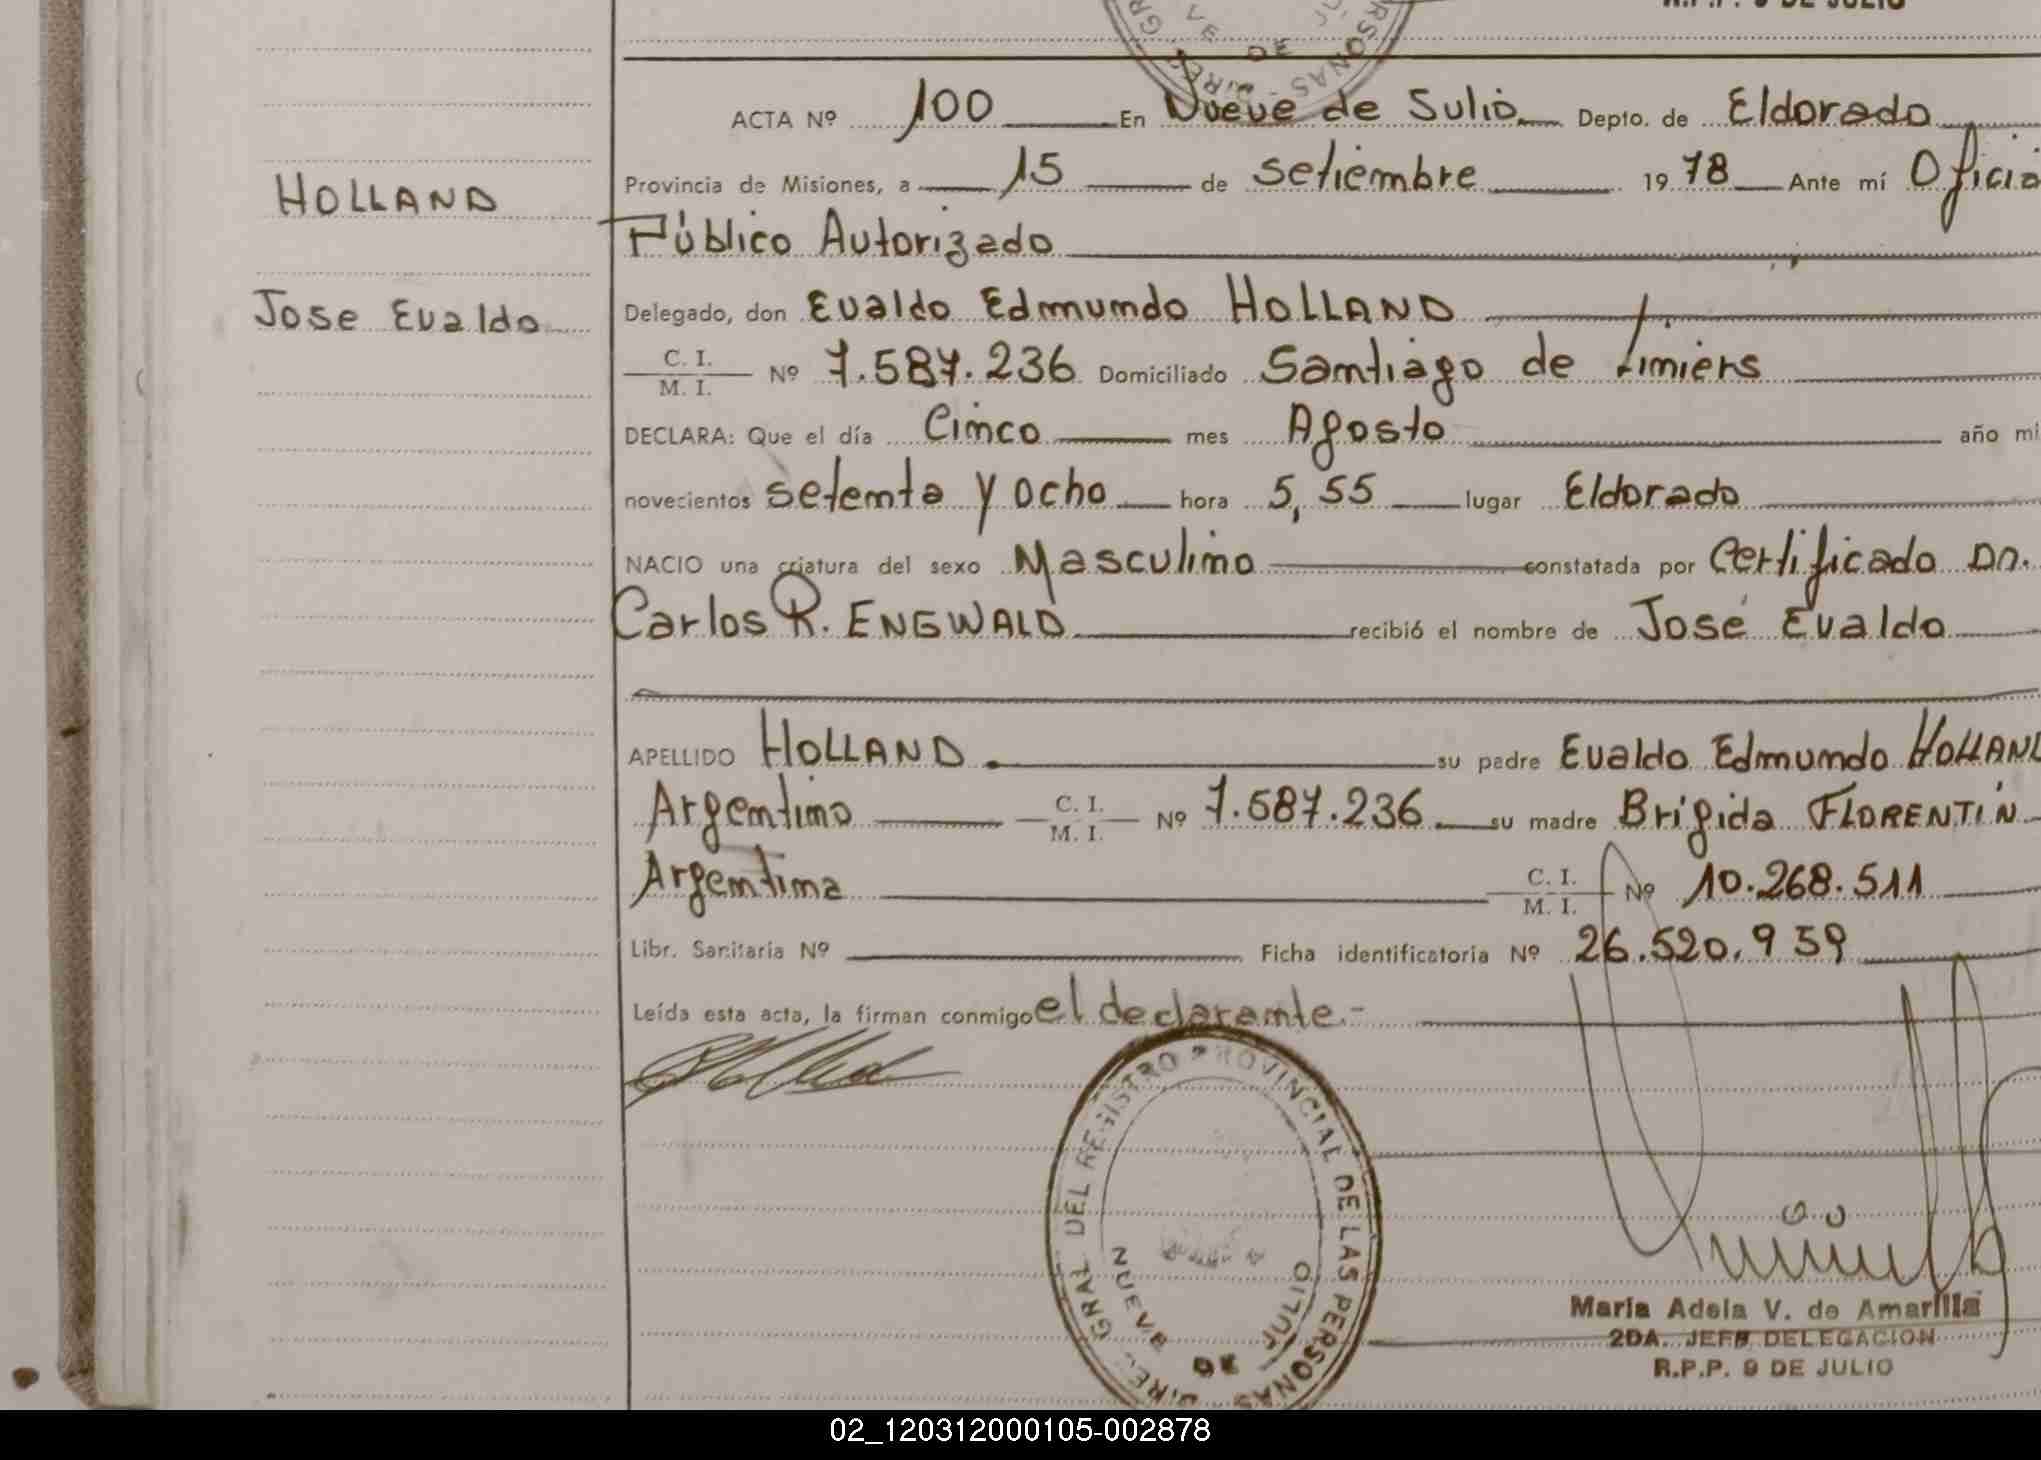 R.P.P. 9 DE JULIO
ACTA Nº 100 En Nueve de Julio Depto. de Eldorado
HOLLAND
Provincia de Misiones, a 15 de setiembre 19 78 Ante mí Oficia
Público Autorizado
Jose Evaldo
Delegado, don Evaldo Edmundo HOLLAND
C. I.
M. I. Nº 7.587.236 Domiciliado Santiago de Limiers
DECLARA: Que el día Cinco mes Agosto año mi
novecientos setenta y ocho hora 5,55 lugar Eldorado
NACIO una criatura del sexo Masculino constatada por Certificado Dn.
Carlos R. ENGWALD recibió el nombre de José Evaldo
APELLIDO HOLLAND. su padre Evaldo Edmundo HOLLAND
Argentino C. I. M. I. Nº 7.587.236 su madre Brígida FLORENTÍN
Argentina C. I. M. I. Nº 10.268.511
Libr. Sanitaria Nº Ficha identificatoria Nº 26.520.959
Leída esta acta, la firman conmigo el declarante.-
DIREC. GRAL DEL REGISTRO PROVINCIAL DE LAS PERSONAS
NUEVE DE JULIO
Maria Adela V. de Amarilla
2DA. JEFE DELEGACION
R.P.P. 9 DE JULIO
02_120312000105-002878